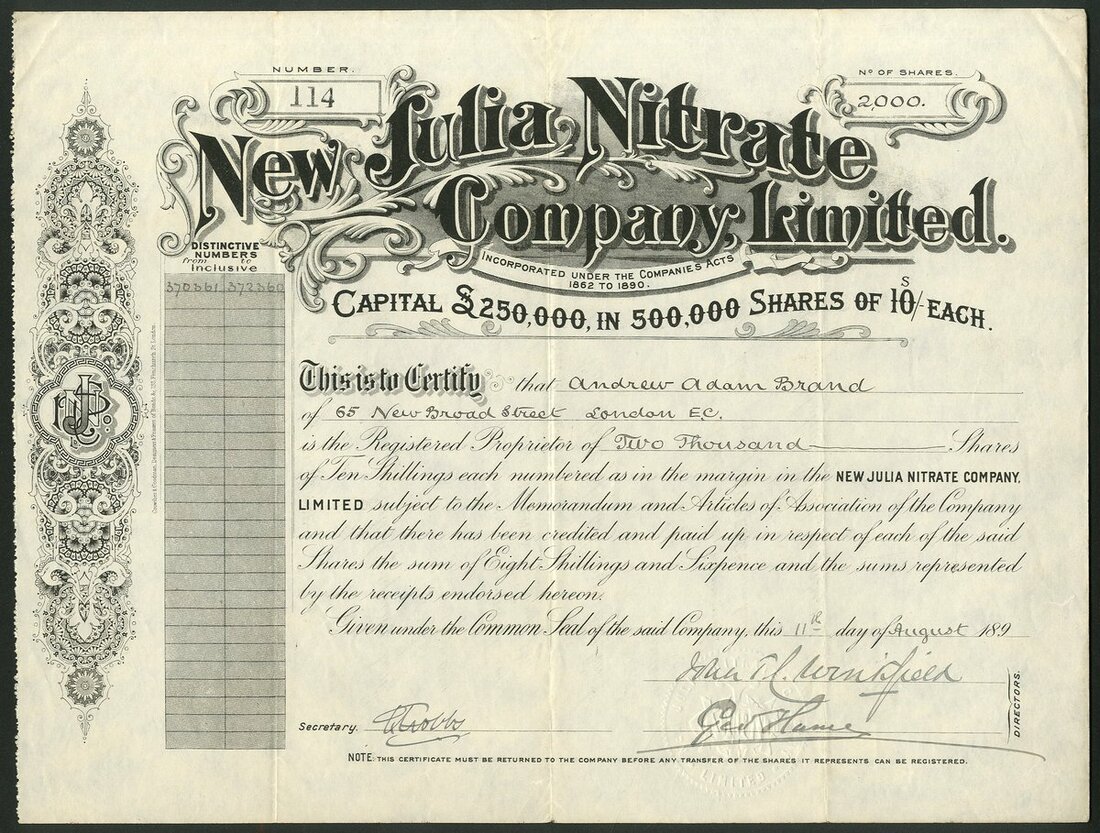 NUMBER.
114
Nº OF SHARES.
2,000.
New Julia Nitrate
Company, Limited.
INCORPORATED UNDER THE COMPANIES ACTS
1862 TO 1890.
CAPITAL £250,000, IN 500,000 SHARES OF 10S/- EACH.
DISTINCTIVE
NUMBERS
from to
inclusive
370361 372360
This is to Certify that Andrew Adam Brand
of 65 New Broad Street London E.C.
is the Registered Proprietor of Two Thousand Shares
of Ten Shillings each numbered as in the margin in the NEW JULIA NITRATE COMPANY,
LIMITED subject to the Memorandum and Articles of Association of the Company
and that there has been credited and paid up in respect of each of the said
Shares the sum of Eight Shillings and Sixpence and the sums represented
by the receipts endorsed hereon.
Given under the Common Seal of the said Company, this 11th day of August 189
Secretary.
DIRECTORS.
NOTE: THIS CERTIFICATE MUST BE RETURNED TO THE COMPANY BEFORE ANY TRANSFER OF THE SHARES IT REPRESENTS CAN BE REGISTERED.
LIMITED